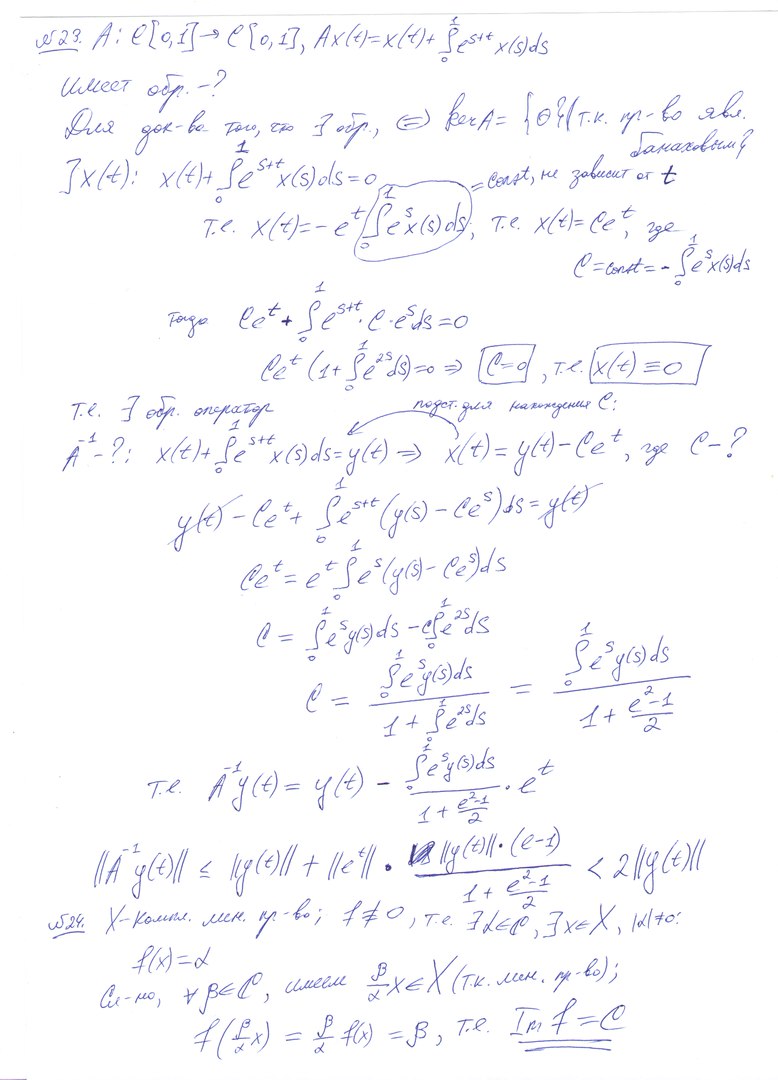 №23. A: C[0,1] → C[0,1], Ax(t) = x(t) + ∫₀¹ e^{s+t} x(s) ds
Имеет обр. -?
Для док-ва того, что ∃ обр., ⇔ ker A = {0} (т.к. пр-во явл. банаховым)
∃ x(t): x(t) + ∫₀¹ e^{s+t} x(s) ds = 0 = const, не зависит от t
т.е. x(t) = - e^t ∫₀¹ e^s x(s) ds, т.е. x(t) = Ce^t, где
C = const = - ∫₀¹ e^s x(s) ds
тогда Ce^t + ∫₀¹ e^{s+t} · C · e^s ds = 0
Ce^t (1 + ∫₀¹ e^{2s} ds) = 0 ⇒ C = 0, т.е. x(t) ≡ 0
т.е. ∃ обр. оператор подст. для нахождения C:
A^{-1} -?: x(t) + ∫₀¹ e^{s+t} x(s) ds = y(t) ⇒ x(t) = y(t) - Ce^t, где C -?
y(t) - Ce^t + ∫₀¹ e^{s+t} (y(s) - Ce^s) ds = y(t)
Ce^t = e^t ∫₀¹ e^s (y(s) - Ce^s) ds
C = ∫₀¹ e^s y(s) ds - C ∫₀¹ e^{2s} ds
C = \frac{∫₀¹ e^s y(s) ds}{1 + ∫₀¹ e^{2s} ds} = \frac{∫₀¹ e^s y(s) ds}{1 + \frac{e^2-1}{2}}
т.е. A^{-1} y(t) = y(t) - \frac{∫₀¹ e^s y(s) ds}{1 + \frac{e^2-1}{2}} · e^t
||A^{-1} y(t)|| ≤ ||y(t)|| + ||e^t|| · \frac{||y(t)|| · (e-1)}{1 + \frac{e^2-1}{2}} < 2||y(t)||
№24. X - компл. лин. пр-во; f ≢ 0, т.е. ∃ α ∈ C, ∃ x ∈ X, |α| ≠ 0:
f(x) = α
Сл-но, ∀ β ∈ C, имеем \frac{β}{α} x ∈ X (т.к. лин. пр-во);
f(\frac{β}{α} x) = \frac{β}{α} f(x) = β, т.е. Im f = C